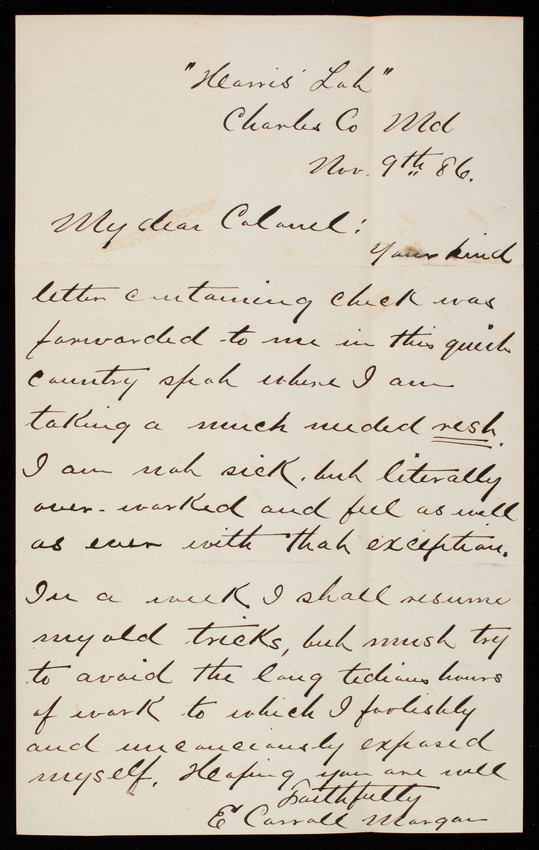 "Harris' Lot"
Charles Co Md
Nov. 9th 86.
My dear Colonel:
Your kind
letter containing check was
forwarded to me in this quiet
country spot where I am
taking a much needed rest.
I am not sick, but literally
over-worked and feel as well
as ever with that exception.
In a week I shall resume
my old tricks, but must try
to avoid the long tedious hours
of work to which I foolishly
and unconciously exposed
myself. Hoping you are well
Faithfully
E Carroll Morgan